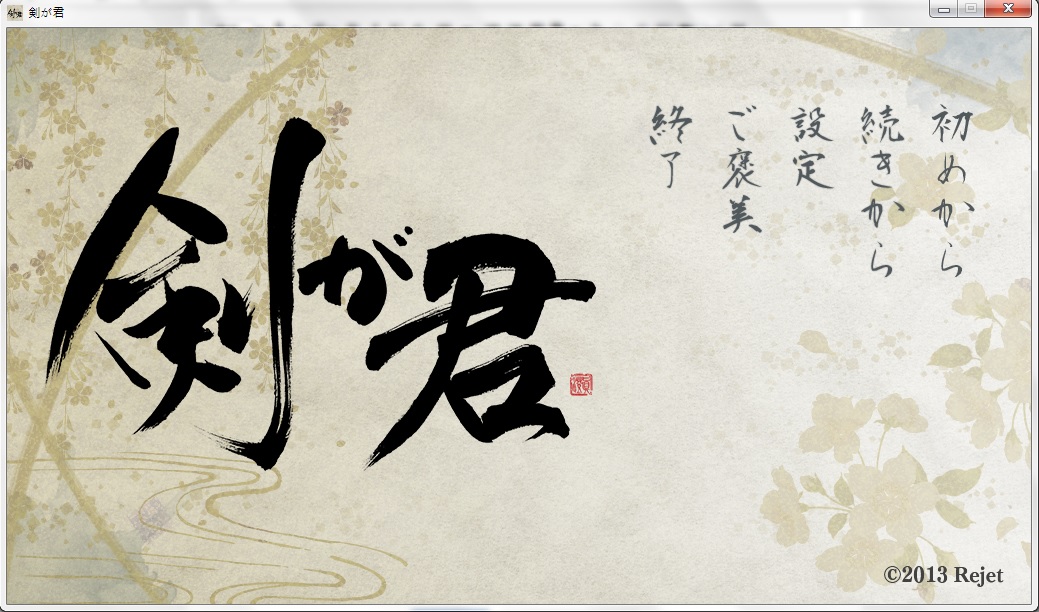 剣が君
剣が君
初めから
続きから
設定
ご褒美
終了
©2013 Rejet